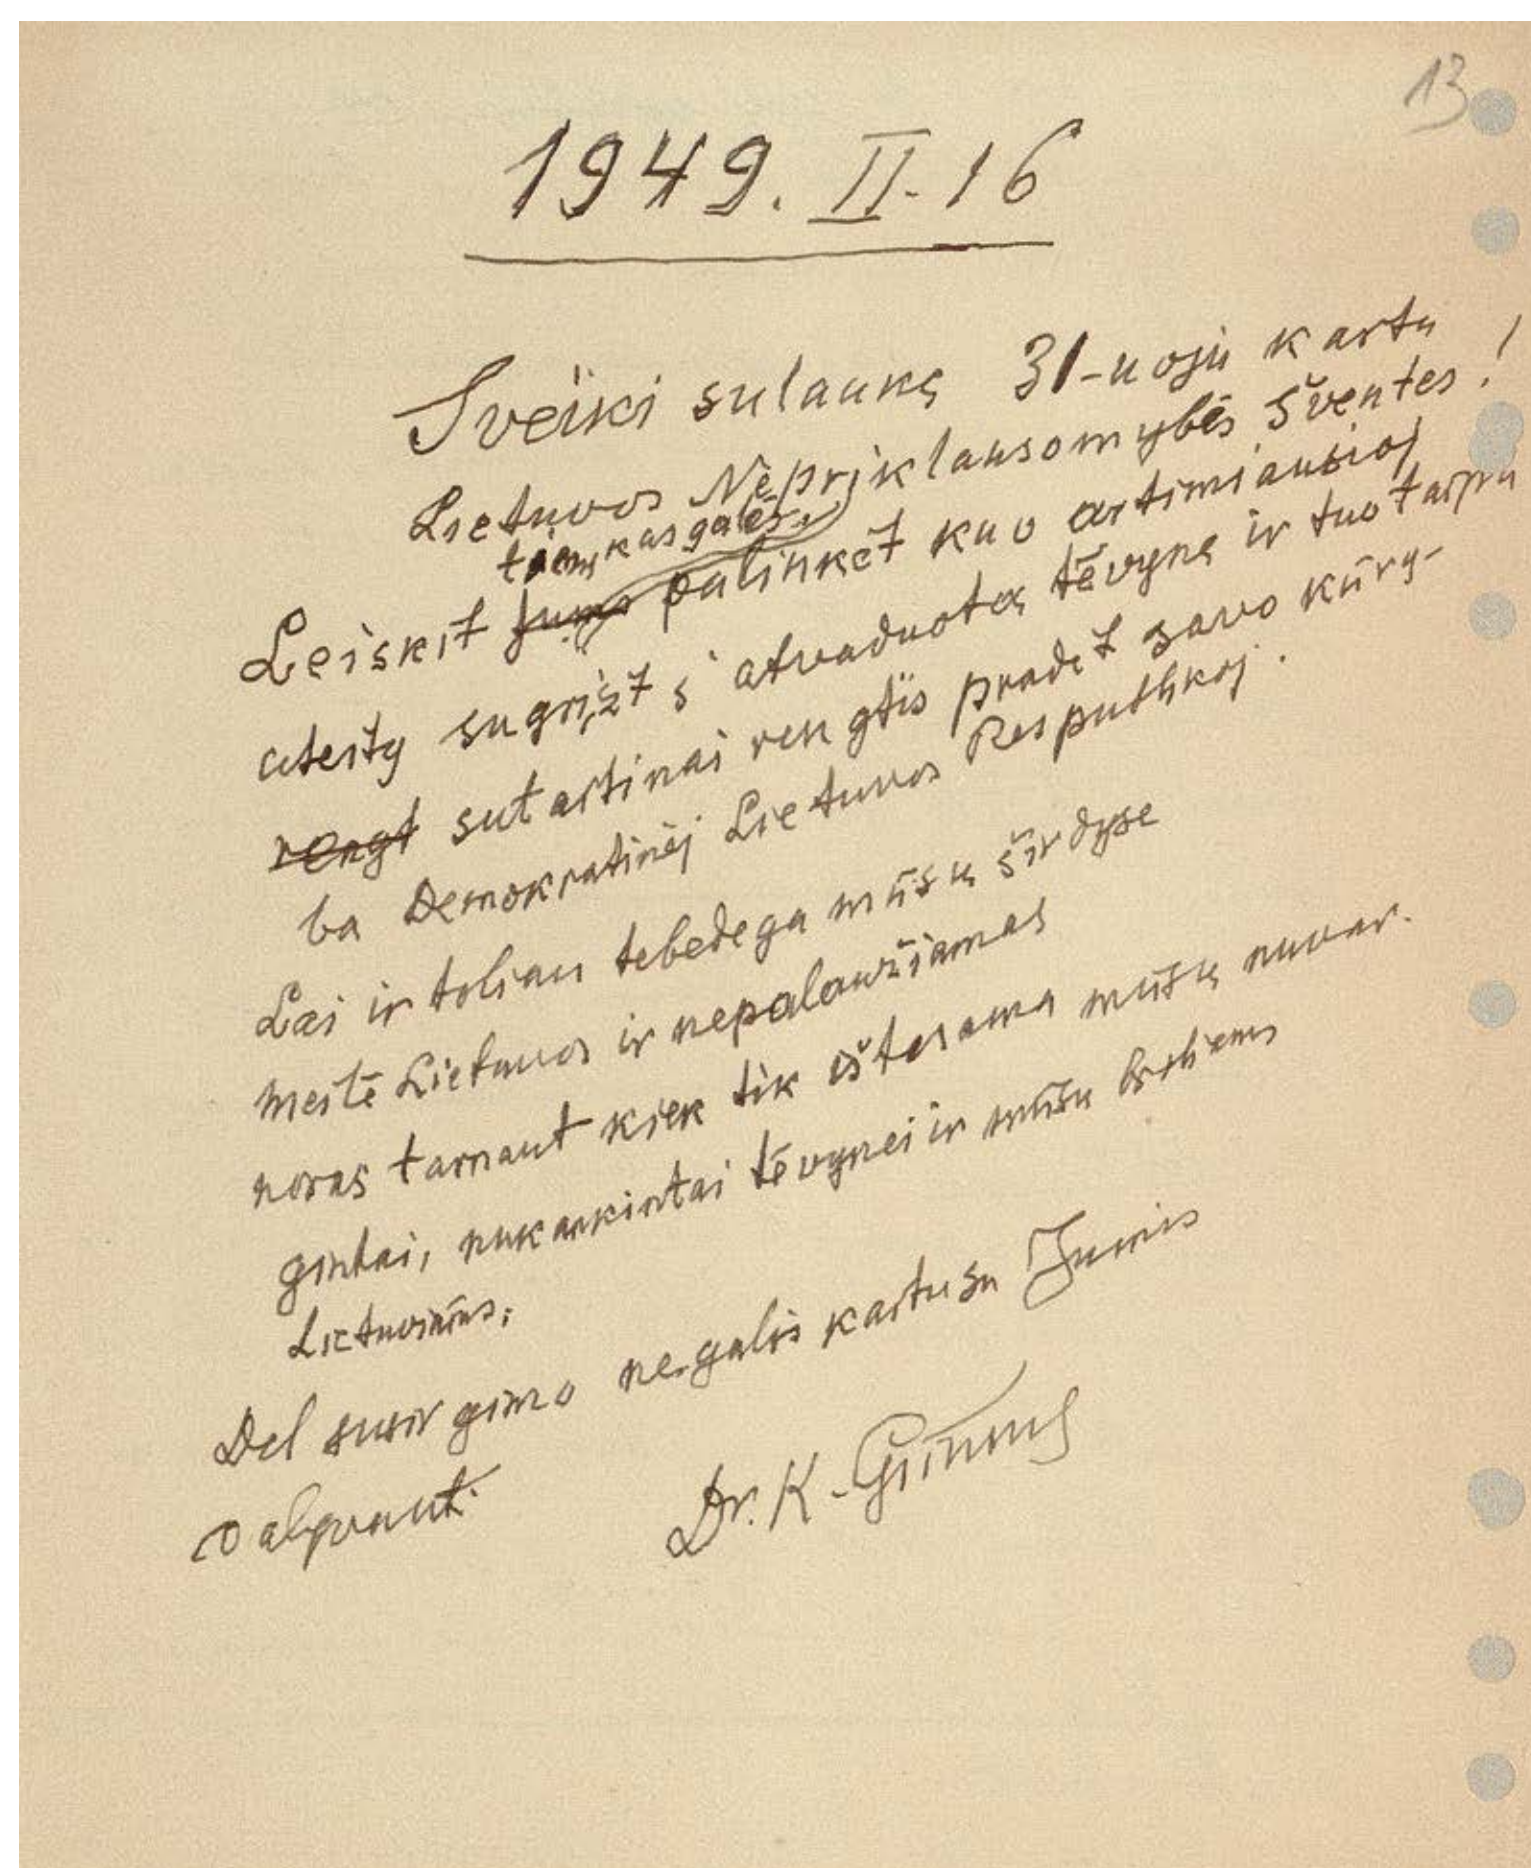 13
1949. II-16
Sveiki sulaukę 31-uoju kartu
Lietuvos Nepriklausomybės šventės!
tiems, kas galės
Leiskit Jums palinkėt kuo artimiausioj
ateity sugrįžt į atvaduotą tėvynę ir tuotarpu
rengt sutartinai rengtis pradėt savo kūry-
bą Demokratinėj Lietuvos Respublikoj.
Lai ir toliau tebedega mūsų širdyse
meilė Lietuvos ir nepalaužiamas
noras tarnaut kiek tik ištesama mūsų nuvar-
gintai, nukankintai tėvynei ir mūsų broliams
Lietuviams.
Dėl susirgimo negalįs kartu su Jumis
dalyvauti.
Dr. K. Grinius